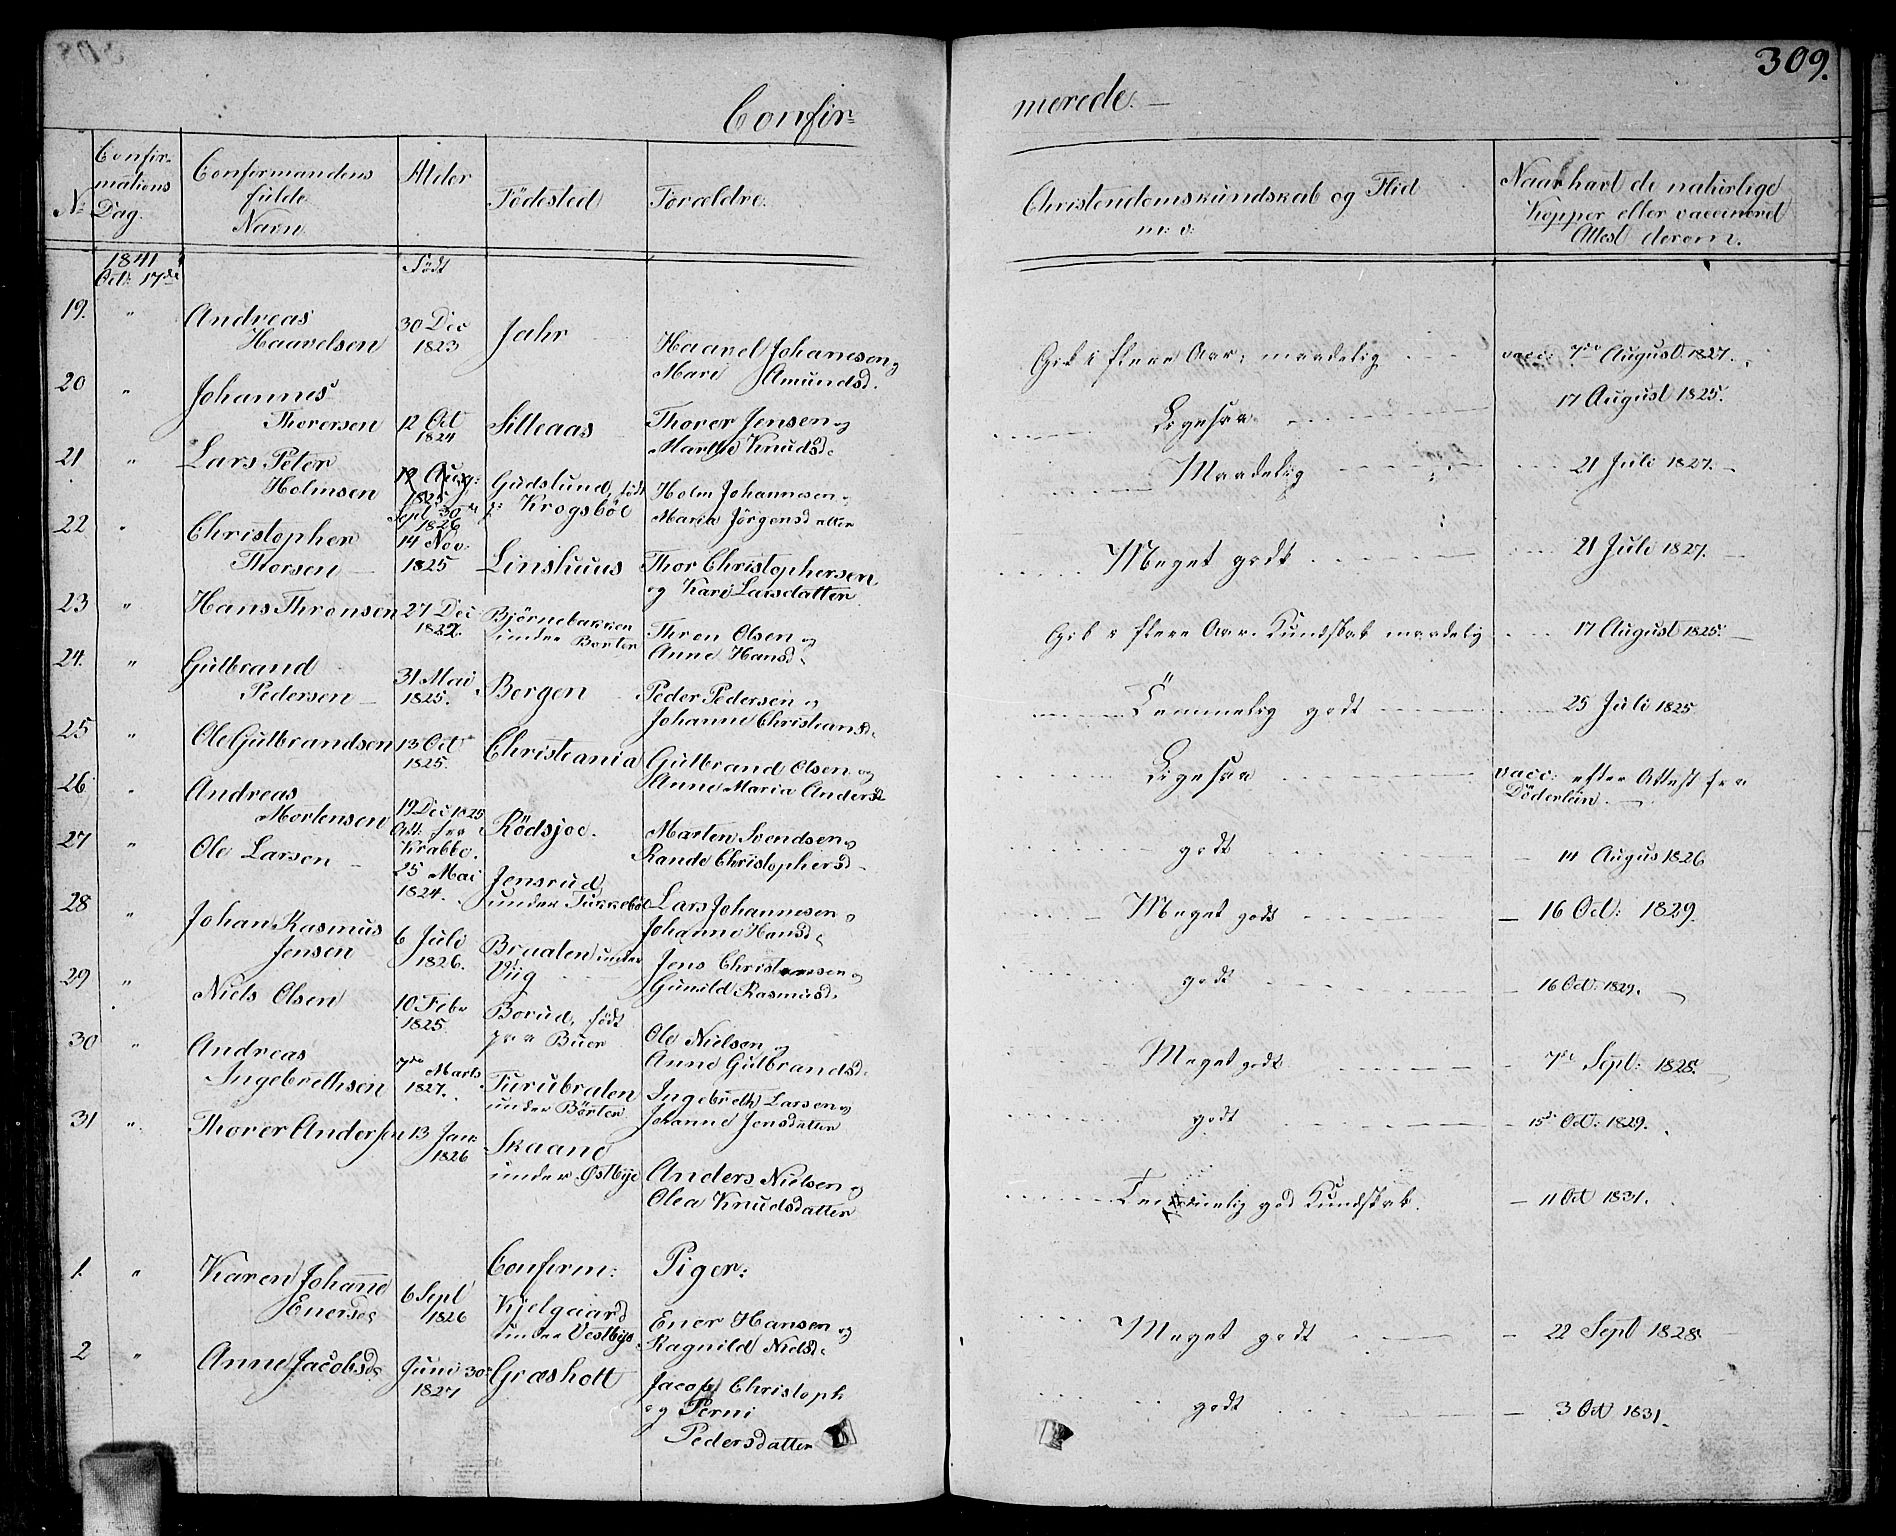 309.
Confir=
merede. —
No
Confir-
mations
Dag.
Confirmandens
fulde
Navn
Alder
Födested
Forældre.
Christendomskundskab og Flid
m: v:
Naar havt de naturlige
Kopper eller vaccinered
Attest derom.
1841
Oct: 17de
Födt
19. " Andreas
Haavelsen
30 Dec
1823
Jahr
Haavel Johannesen og
Mari Amundsd.
Gik i flere Aar; maadelig
vacc: 7de August 1827.
20 " Johannes
Thorersen
12 Oct
1824
Silleaas
Thorer Jensen og
Marthe Knudsd.
Ligesaa
17 August 1825.
21 " Lars Peter
Holmsen
12 Aug:
1825
Sept 30te
1826
Gudslund, födt
p: Krogsböl
Holm Johannesen og
Maria Jörgensdatter
Maadelig
21 Juli 1827.
22 " Christopher
Thorsen
14 Nov.
1825
Linshuus
Thor Christophersen
og Kari Larsdatter
Meget godt
21 Juli 1827.
23 " Hans Thronsen
27 Dec
1822.
Björnebakken
under Borter
Thron Olsen og
Anne Hansd.
Gik i flere Aar. Kundskab maadelig
17 August 1825.
24. " Gulbrand
Pedersen
31 Mai
1825.
Borgen
Peder Pedersen og
Johanne Christiansd.
Temmelig godt
25 Juli 1825
25 " Ole Gulbrandsen
13 Oct
1825.
Christiania
Gulbrand Olsen og
Anne Maria Andersd
Ligesaa
vacc: efter Attest fra
Döderlein.
26 " Andreas
Mortensen
19 Dec 1825
Att: fra
Krabbe.
Rödsjoe.
Morten Svendsen og
Rande Christophersd
godt
14 Augus 1826
27 " Ole Larsen
25 Mai
1824.
Jensrud
under Tukkeböl
Lars Johannesen og
Johanne Hansd.
Meget godt
16 Oct: 1829.
28 " Johan Rasmus
Jensen
6 Juli
1826.
Braaten under
Viig
Jens Christensen og
Gunild Rasmusd.
godt
16 Oct: 1829.
29 " Niels Olsen
10 Febr
1825.
Borud, födt
paa Buer
Ole Nielsen og
Anne Gulbrandsd.
Meget godt
7de Sept: 1828.
30 " Andreas
Ingebrethsen
7de Marts
1827.
Turubraten
under Börter
Ingebreth Larsen og
Johanne Jensdatter
godt
15de Oct: 1829.
31 " Thorer Andersen
13 Jan:
1826
Skaane
under Østbye
Anders Nielsen og
Olea Knudsdatter
Temmelig god Kundskab.
11 Oct 1831.
Confirm: Piger:
1. " Karen Johanne
Enersd.
6 Sept
1826
Kjelgaard
under Vestbye
Ener Hansen og
Ragnild Nielsd.
Meget godt
22 Sept 1828
2 " Anne Jacobsd.
Juni 30te
1827
Græsholt
Jacob Christoph
og Perni
Pedersdatter
godt
3 Oct 1831.